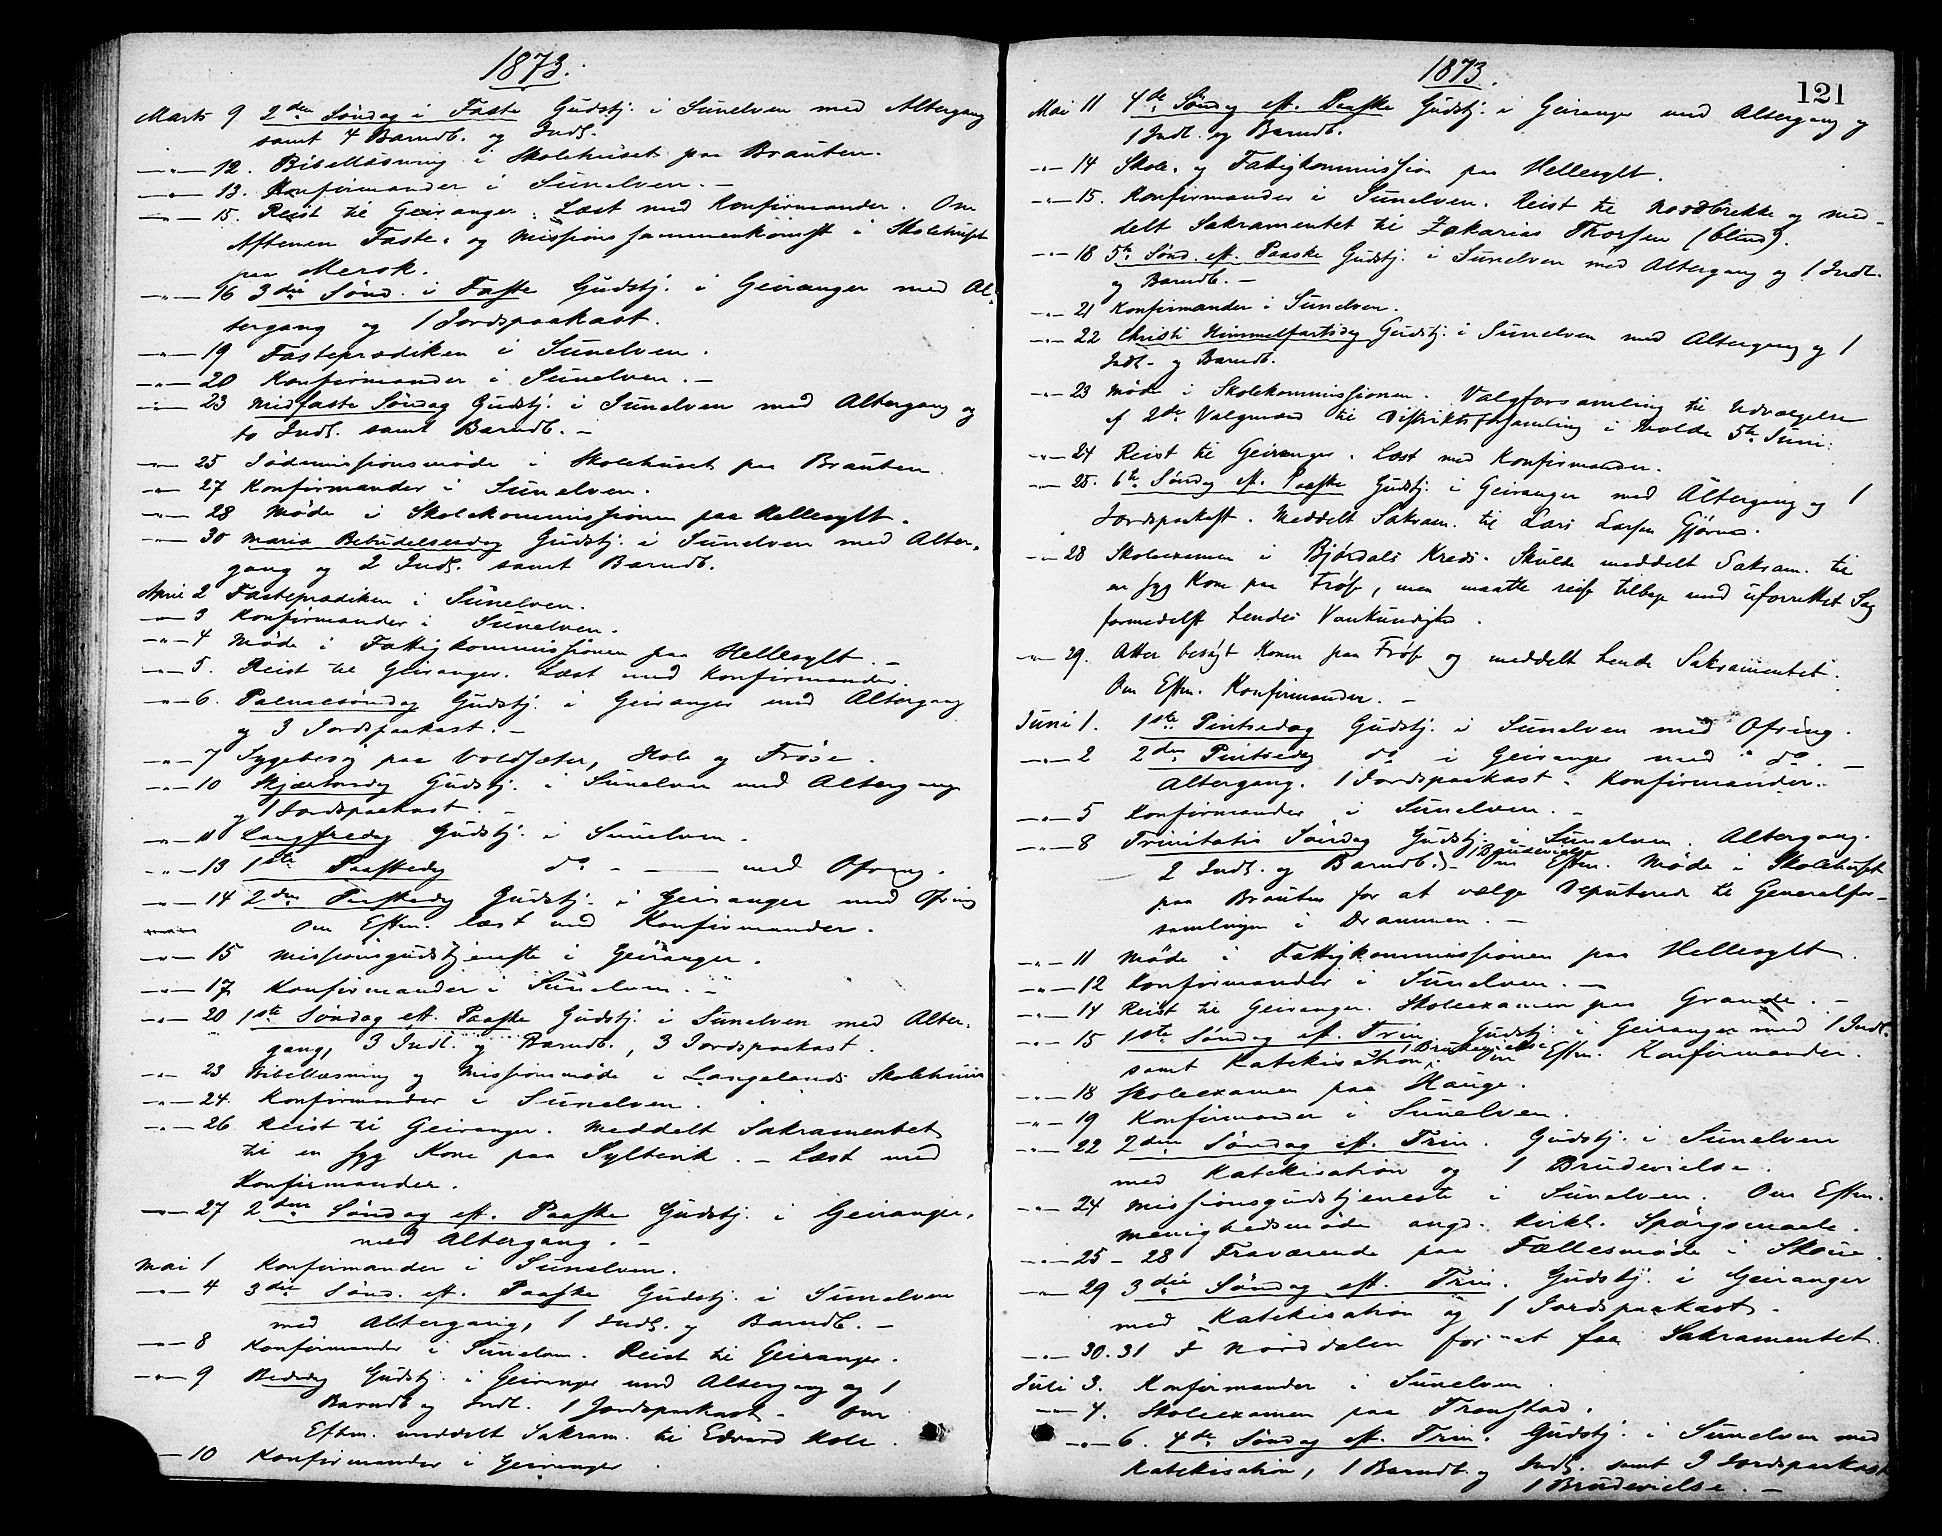 1873.
Marts 9 2den Søndag i Faste Gudstj. i Sunelven med Altergang
samt 4 Barndb. og Indl.
—"— 12. Bibellæsning i Skolehuset paa Brauten.
—"— 13. Konfirmander i Sunelven. —
—"— 15. Reist til Geiranger. Læst med Konfirmander. Om
Aftenen Faste- og Missionssammenkomst i Skolehuset
paa Merok.
—"— 16 3die Sønd. i Faste Gudstj. i Geiranger med Al-
tergang og 1 Jordspaakast.
—"— 19 Fasteprædiken i Sunelven.
—"— 20 Konfirmander i Sunelven. —
—"— 23 Midfaste Søndag Gudstj. i Sunelven med Altergang og
to Indl. samt Barndb. —
—"— 25 Jødemissionsmøde i Skolehuset paa Brauten.
—"— 27 Konfirmander i Sunelven.
—"— 28 Møde i Skolekommissionen paa Hellesylt.
—"— 30 Maria Bebudelsesdag Gudstj. i Sunelven med Alter-
gang og 2 Indl. samt Barndb.
April 2 Fasteprædiken i Sunelven.
—"— 3 Konfirmander i Sunelven.
—"— 4 Møde i Fattigkommissionen paa Hellesylt. —
—"— 5. Reist til Geiranger. Læst med Konfirmander.
—"— 6. Palmesøndag Gudstj. i Geiranger med Altergang
og 3 Jordspaakast. —
—"— 7 Sygebesøg paa Voldsæter, Hole og Frøse.
—"— 10 Skjærtorsdag Gudstj. i Sunelven med Altergang
og 1 Jordspaakast. —
—"— 11 Langfredag Gudstj. i Sunelven.
—"— 13 1ste Paaskedag do — — med Ofring.
—"— 14 2den Paaskedag Gudstj. i Geiranger med Ofring
Om Eftm. læst med Konfirmander.
—"— 15 Missionsgudstjeneste i Geiranger.
—"— 17 Konfirmander i Sunelven. —
—"— 20 1ste Søndag eft. Paaske Gudstj. i Sunelven med Alter-
gang, 3 Indl. og Barndb., 3 Jordspaakast.
—"— 23 Bibellæsning og Missionsmøde i Langelands Skolehuus
—"— 24. Konfirmander i Sunelven.
—"— 26 Reist til Geiranger. Meddelt Sakramentet
til en syg Kone paa Syltevik. — Læst med
Konfirmander.
—"— 27 2den Søndag eft. Paaske Gudstj. i Geiranger,
med Altergang. —
Mai 1 Konfirmander i Sunelven.
—"— 4 3die Sønd. eft. Paaske Gudstj. i Sunelven
med Altergang, 1 Indl. og Barndb. —
—"— 8 Konfirmander i Sunelven. Reist til Geiranger.
—"— 9 Bededag Gudstj. i Geiranger med Altergang og 1
Barndb og Indl. 1 Jordspaakast. Om
Eftm. meddelt Sakram. til Edvard Hole.
— 10 Konfirmander i Geiranger.
1873.
121
Mai 11 4de Søndag eft. Paaske Gudstj. i Geiranger med Altergang og
1 Indl. og Barndb.
—"— 14 Skole- og Fattigkommission paa Hellesylt.
—"— 15. Konfirmander i Sunelven. Reist til Nordbrekke og med-
delt Sakramentet til Zakarias Thorsen (blind).
—"— 18 5te Sønd. eft. Paaske Gudstj. i Sunelven med Altergang og 1 Indl.
og Barndb. —
—"— 21 Konfirmander i Sunelven.
—"— 22 Christi Himmelfartsdag Gudstj. i Sunelven med Altergang og 1
Indl. og Barndb.
—"— 23 Møde i Skolekommissionen. Valgforsamling til Udvælgelse
af 2de Valgmænd til Distriktsforsamling i Molde 5te Juni.
—"— 24 Reist til Geiranger. Læst med Konfirmander.
—"— 25. 6te Søndag eft. Paaske Gudstj. i Geiranger med Altergang og 1
Jordspaakast. Meddelt Sakram. til Lars Larsen Gjørva.
—"— 28 Skoleexamen i Bjørdals Kreds. Skulde meddelt Sakram. til
en syg Kone paa Frøse, men maatte reise tilbage med uforrettet Sag
formedelst hendes Vankundighed.
—"— 29. Atter besøgt Konen paa Frøse og meddelt hende Sakramentet.
Om Eftm. Konfirmander. —
Juni 1. 1ste Pintsedag Gudstj. i Sunelven med Ofring.
—"— 2 2den Pintsedag do i Geiranger med do. —
Altergang. 1 Jordspaakast. Konfirmander.
—"— 5 Konfirmander i Sunelven. —
—"— 8 Trinitatis Søndag Gudstj. i Sunelven. Altergang.
1 Brudevielse
2 Indl. og Barndb. — Om Eftm. Møde i Skolehuset
paa Brauten for at vælge Deputerede til Generalfor-
samlingen i Drammen. —
—"— 11 Møde i Fattigkommissionen paa Hellesylt.
—"— 12 Konfirmander i Sunelven. —
—"— 14 Reist til Geiranger. Skoleexamen paa Grande. —
—"— 15 1ste Søndag eft. Trin. Gudstj. i Geiranger med 1 Indl.
Brudevielse
samt Katekisation. Om Eftm. Konfirmander.
—"— 18 Skoleexamen paa Hauge.
—"— 19 Konfirmander i Sunelven.
—"— 22 2den Søndag eft. Trin. Gudstj. i Sunelven
med Katekisation og 1 Brudevielse.
—"— 24 Missionsgudstjeneste i Sunelven. Om Eftm.
Menighedsmøde angd. kirkl. Spørgsmaale.
—"— 25 – 28 Fraværende paa Fællesmøde i Skoue.
—"— 29 3die Søndag eft. Trin. Gudstj. i Geiranger
med Katekisation og 1 Jordspaakast.
—"— 30. 31 I Norddalen for at faa Sakramentet.
Juli 3. Konfirmander i Sunelven.
—"— 4. Skoleexamen paa Tronstad.
—"— 6. 4de Søndag eft. Trin. Gudstj. i Sunelven med
Katekisation, 1 Barndb. og Indl. samt 3 Jordspaakast
1 Brudevielse. —